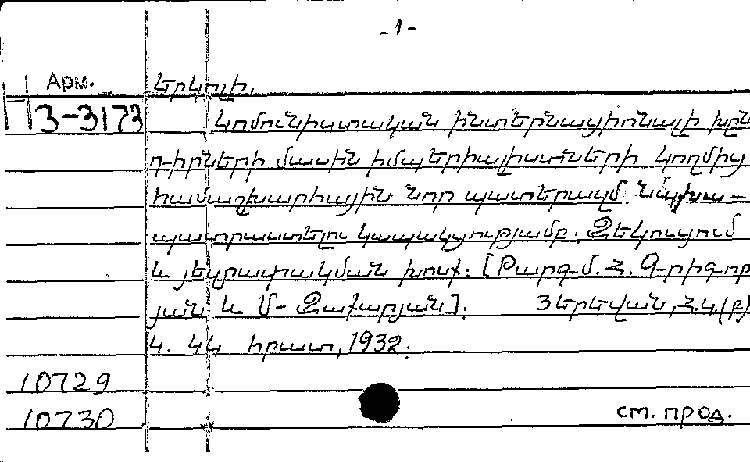 -1-
Арм. Երկոլի.
П З-3173 Կոմունիստական ինտերնացիոնալի խըն
դիրների մասին իմպերիալիստների կողմից
համաշխարհային նոր պատերազմ նախա-
պատրաստելու կապակցությամբ: Զեկուցում
և յեզրափակման խոսք: [Թարգմ. Հ. Գրիգոր
յան և Մ. Զաքարյան]: Յերեվան, Հ.Կ(բ)
Կ. ԿԿ հրատ, 1932:
10729
10730 см. прод.